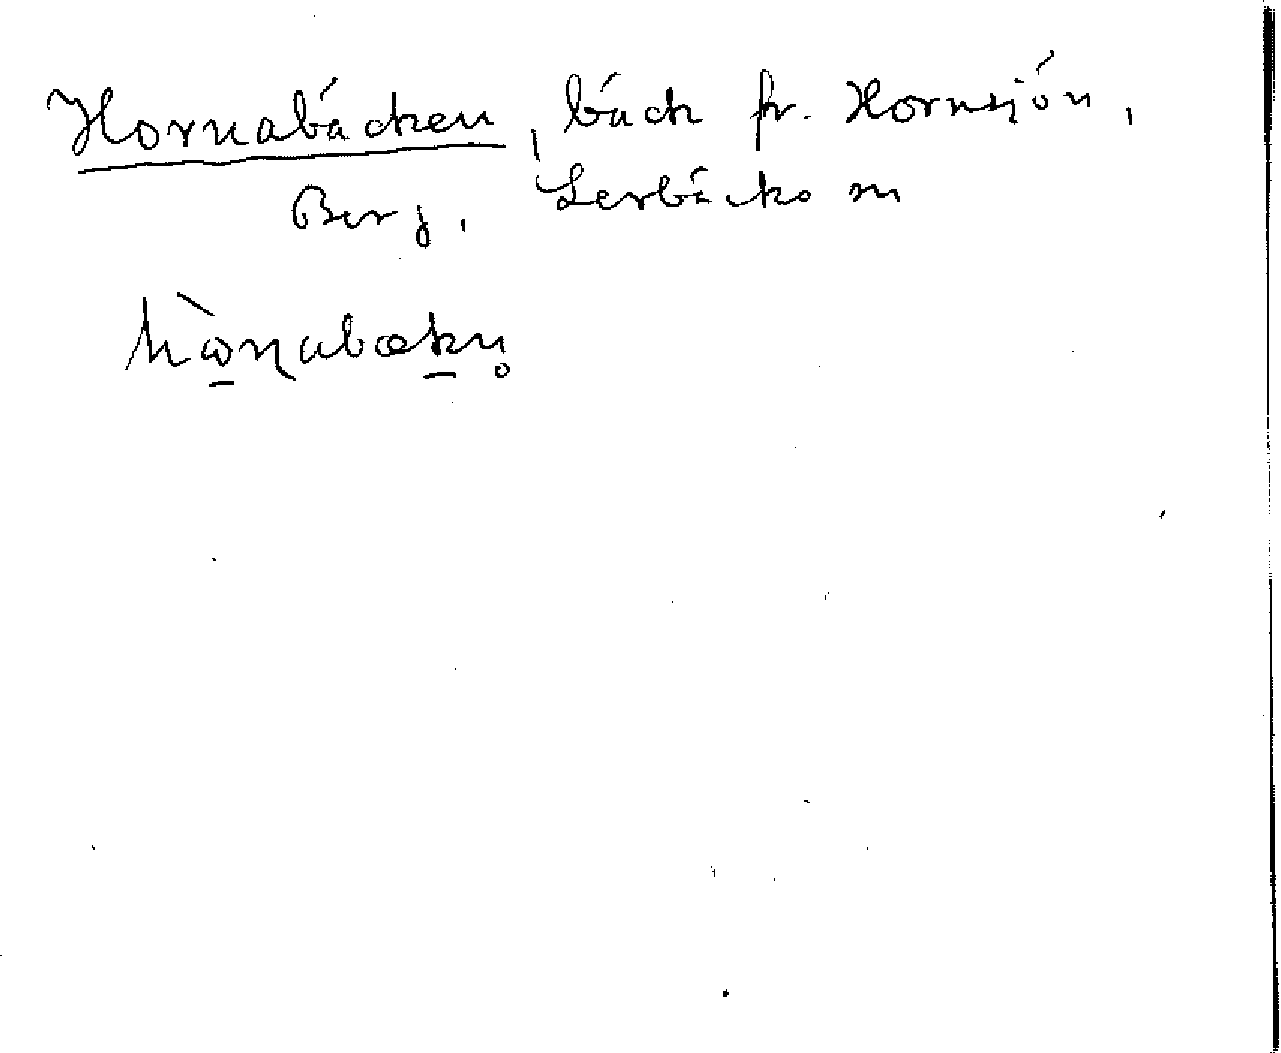 Hornabäcken, bäck fr. Hornsjön,
Berg, Lerbäcks sn
hὼɳabækn̥